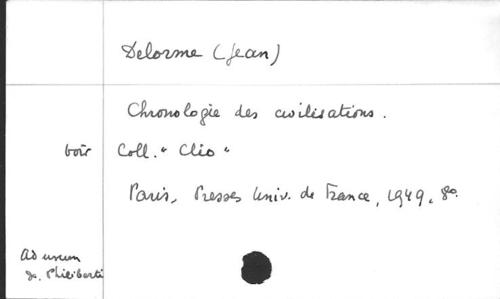 Delorme (Jean)
Chronologie des civilisations.
voir Coll. "Clio"
Paris, Presses Univ. de France, 1949, 8o.
Ad usum
Philiberti